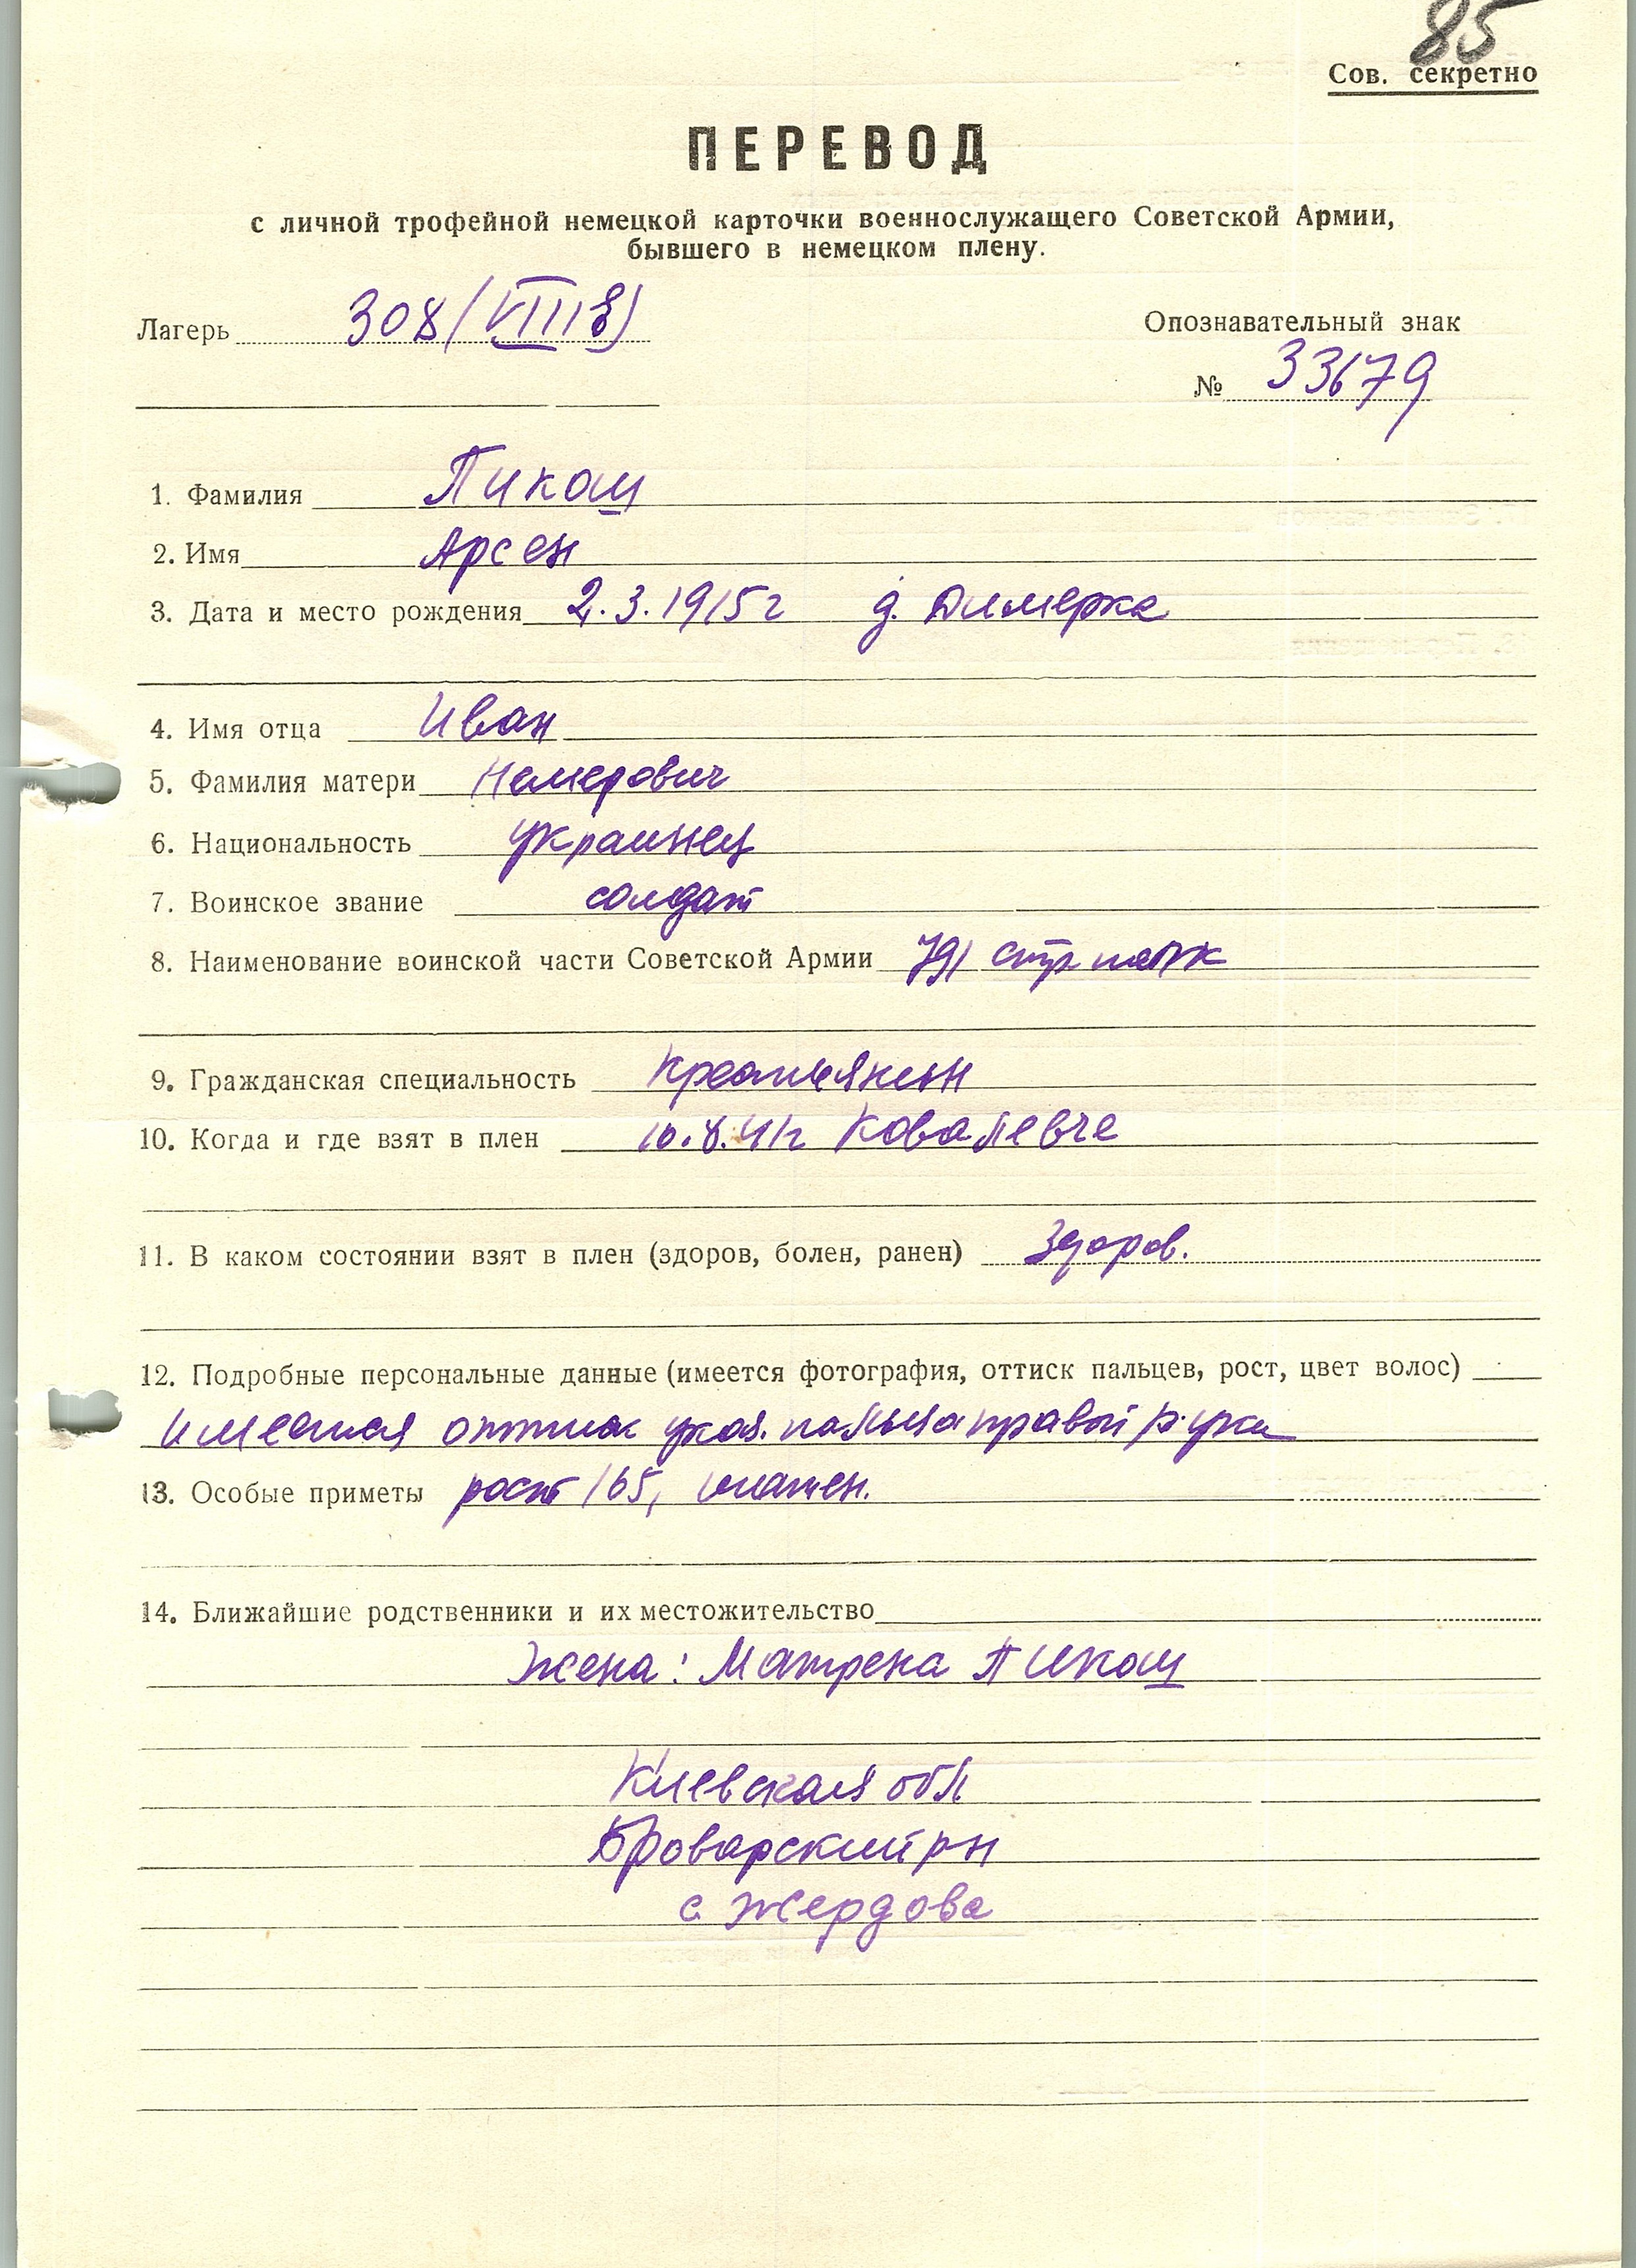 85
Сов. секретно
ПЕРЕВОД
с личной трофейной немецкой карточки военнослужащего Советской Армии,
бывшего в немецком плену.
Лагерь 308 (VIII
Опознавательный знак
№ 33679
1. Фамилия Пикаш
2. Имя Арсен
3. Дата и место рождения 2.3.1915г д. Димерка
4. Имя отца Иван
5. Фамилия матери Немерович
6. Национальность украинец
7. Воинское звание солдат
8. Наименование воинской части Советской Армии 791 стр полк
9. Гражданская специальность Крестьянин
10. Когда и где взят в плен 10.8.41г Ковалевче
11. В каком состоянии взят в плен (здоров, болен, ранен) Здоров.
12. Подробные персональные данные (имеется фотография, оттиск пальцев, рост, цвет волос)
имеется оттиск указ. пальца правой руки
13. Особые приметы рост 165,
14. Ближайшие родственники и их местожительство
Жена: Матрена Пикаш
Киевская обл
Броварский рн
с. Жердова